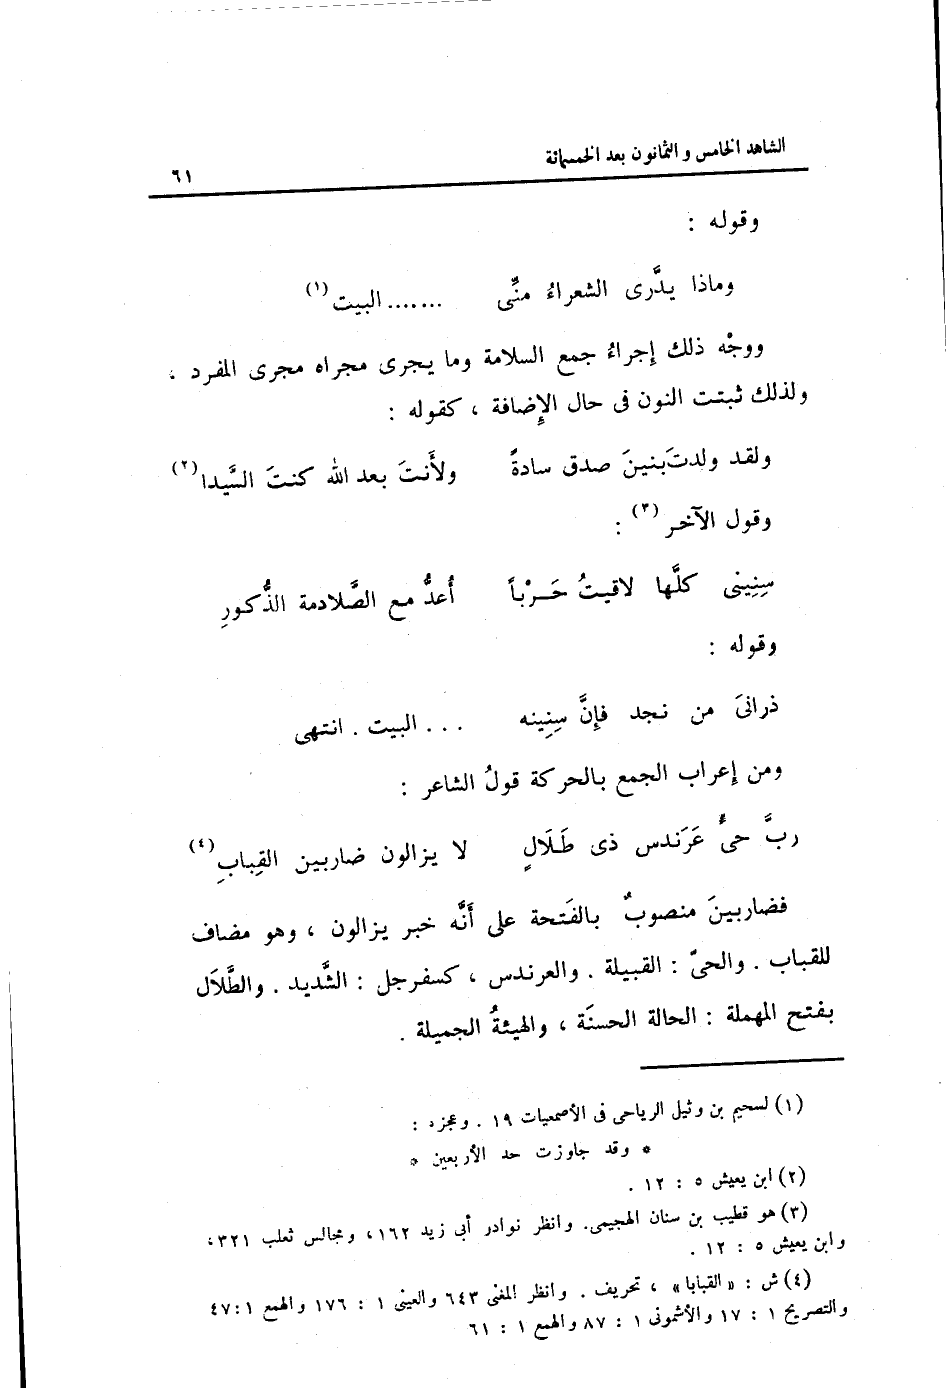 الشاهد الخامس والثمانون بعد الخمسمائة ٦١
وقوله :
وماذا يدَّرى الشعراءُ منِّى ....... البيت (١)
ووجْه ذلك إجراءُ جمع السلامة وما يجرى مجراه مجرى المفرد ،
ولذلك ثبتت النون فى حال الإضافة ، كقوله :
ولقد ولدتَ بنينَ صدق سادةً ولأَنتَ بعد الله كنتَ السَّيدا (٢)
وقول الآخر (٣) :
سِنِينى كلَّها لاقيتُ حَرْباً أُعدُّ مع الصَّلادمة الذُّكورِ
وقوله :
ذرانىَ من نجد فإِنَّ سِنِينه ... البيت . انتهى
ومن إعراب الجمع بالحركة قولُ الشاعر :
ربَّ حىٍّ عَرَندس ذى طَلَالٍ لا يزالون ضاربين القِبابِ (٤)
فضاربينَ منصوبٌ بالفَتحة على أَنَّه خبر يزالون ، وهو مضاف
للقباب . والحىّ : القبيلة . والعرندس ، كسفرجل : الشَّديد . والطَّلَال
بفتح المهملة : الحالة الحسنَة ، والهيئةُ الجميلة .
(١) لسحيم بن وثيل الرياحى فى الأصمعيات ١٩ . وعجزه :
* وقد جاوزت حد الأربعين *
(٢) ابن يعيش ٥ : ١٢ .
(٣) هو قطيب بن سنان الهجيمى. وانظر نوادر أبى زيد ١٦٢، ومجالس ثعلب ٣٢١،
وابن يعيش ٥ : ١٢ .
(٤) ش : « القبابا » ، تحريف . وانظر المغنى ٦٤٣ والعينى ١ : ١٧٦ والهمع ١ : ٤٧
والتصريح ١ : ١٧ والأشمونى ١ : ٨٧ والهمع ١ : ٦١